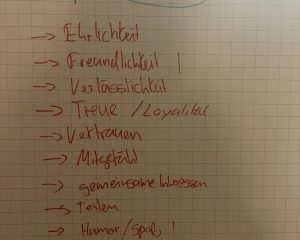 → Ehrlichkeit
→ Freundlichkeit |
→ Verlässlichkeit
→ Treue / Loyalität
→ Vertrauen
→ Mitgefühl
→ gemeinsame Interessen
→ teilen
→ Humor / Spaß |